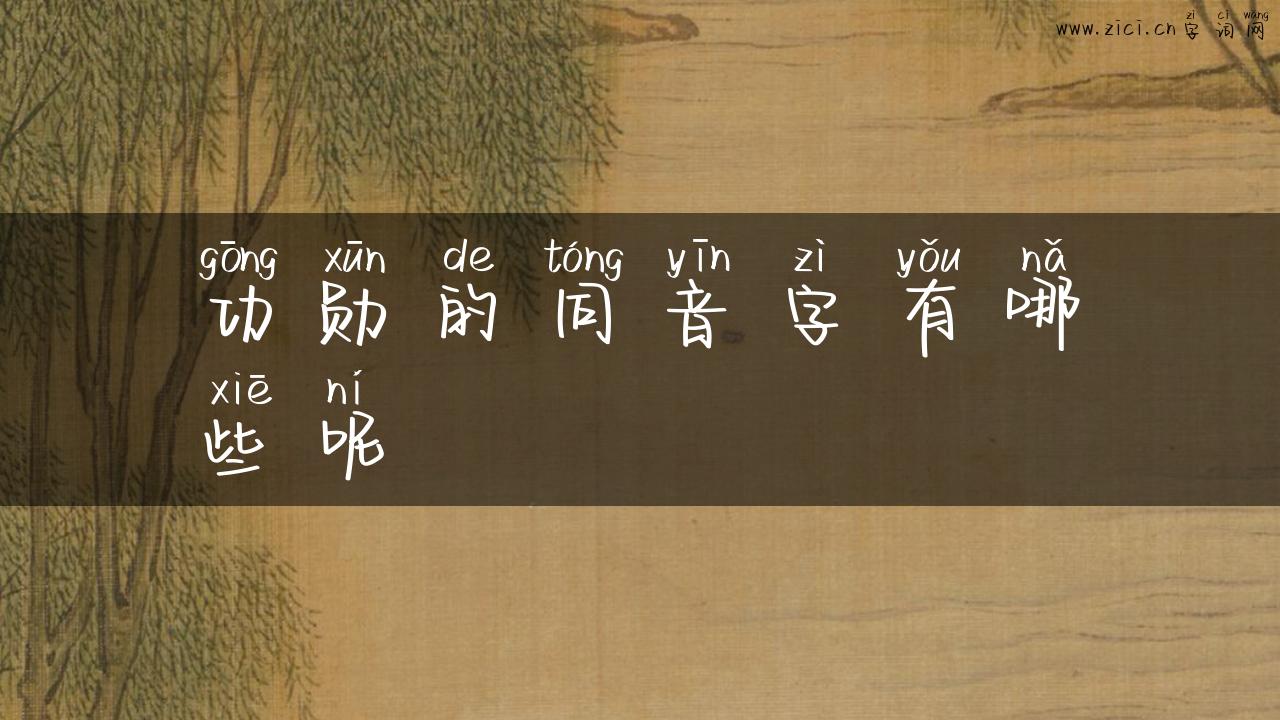 zì cí wǎng
www.zici.cn字词网
gōng xūn de tóng yīn zì yǒu nǎ
功勋的同音字有哪
xiē ní
些呢